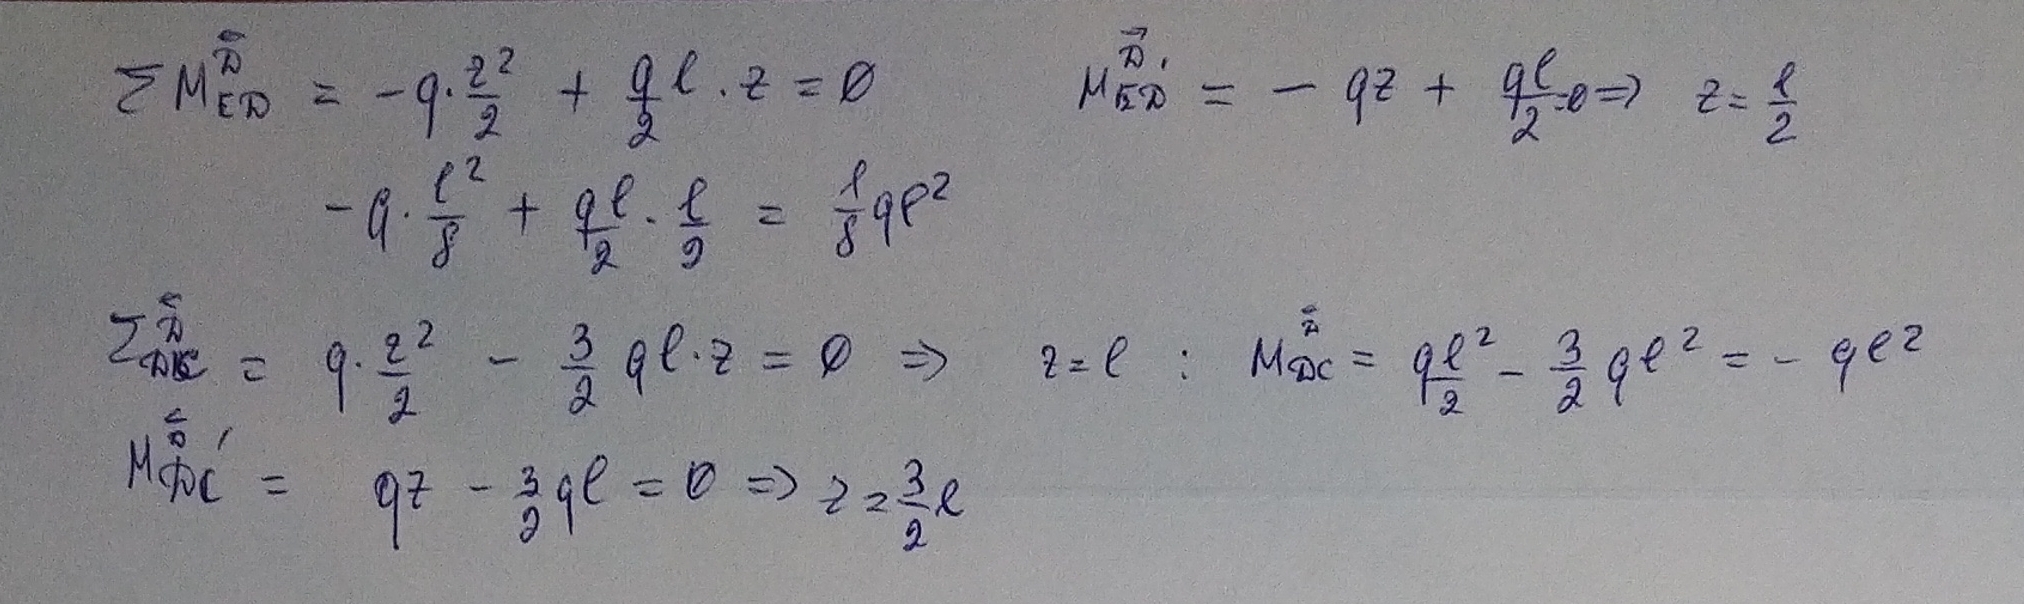 Σ M_ED^D⃖ = - q · z²/2 + q/2 l · z = 0 M_ED^D⃗ ' = - qz + ql/2 = 0 => z = l/2
- q · l²/8 + ql/2 · l/2 = 1/8 ql²
Σ_DC^D⃖ = q · z²/2 - 3/2 ql · z = 0 => z = l : M_DC^D⃖ = ql²/2 - 3/2 ql² = - ql²
M_DC^D⃖ ' = qz - 3/2 ql = 0 => z = 3/2 l